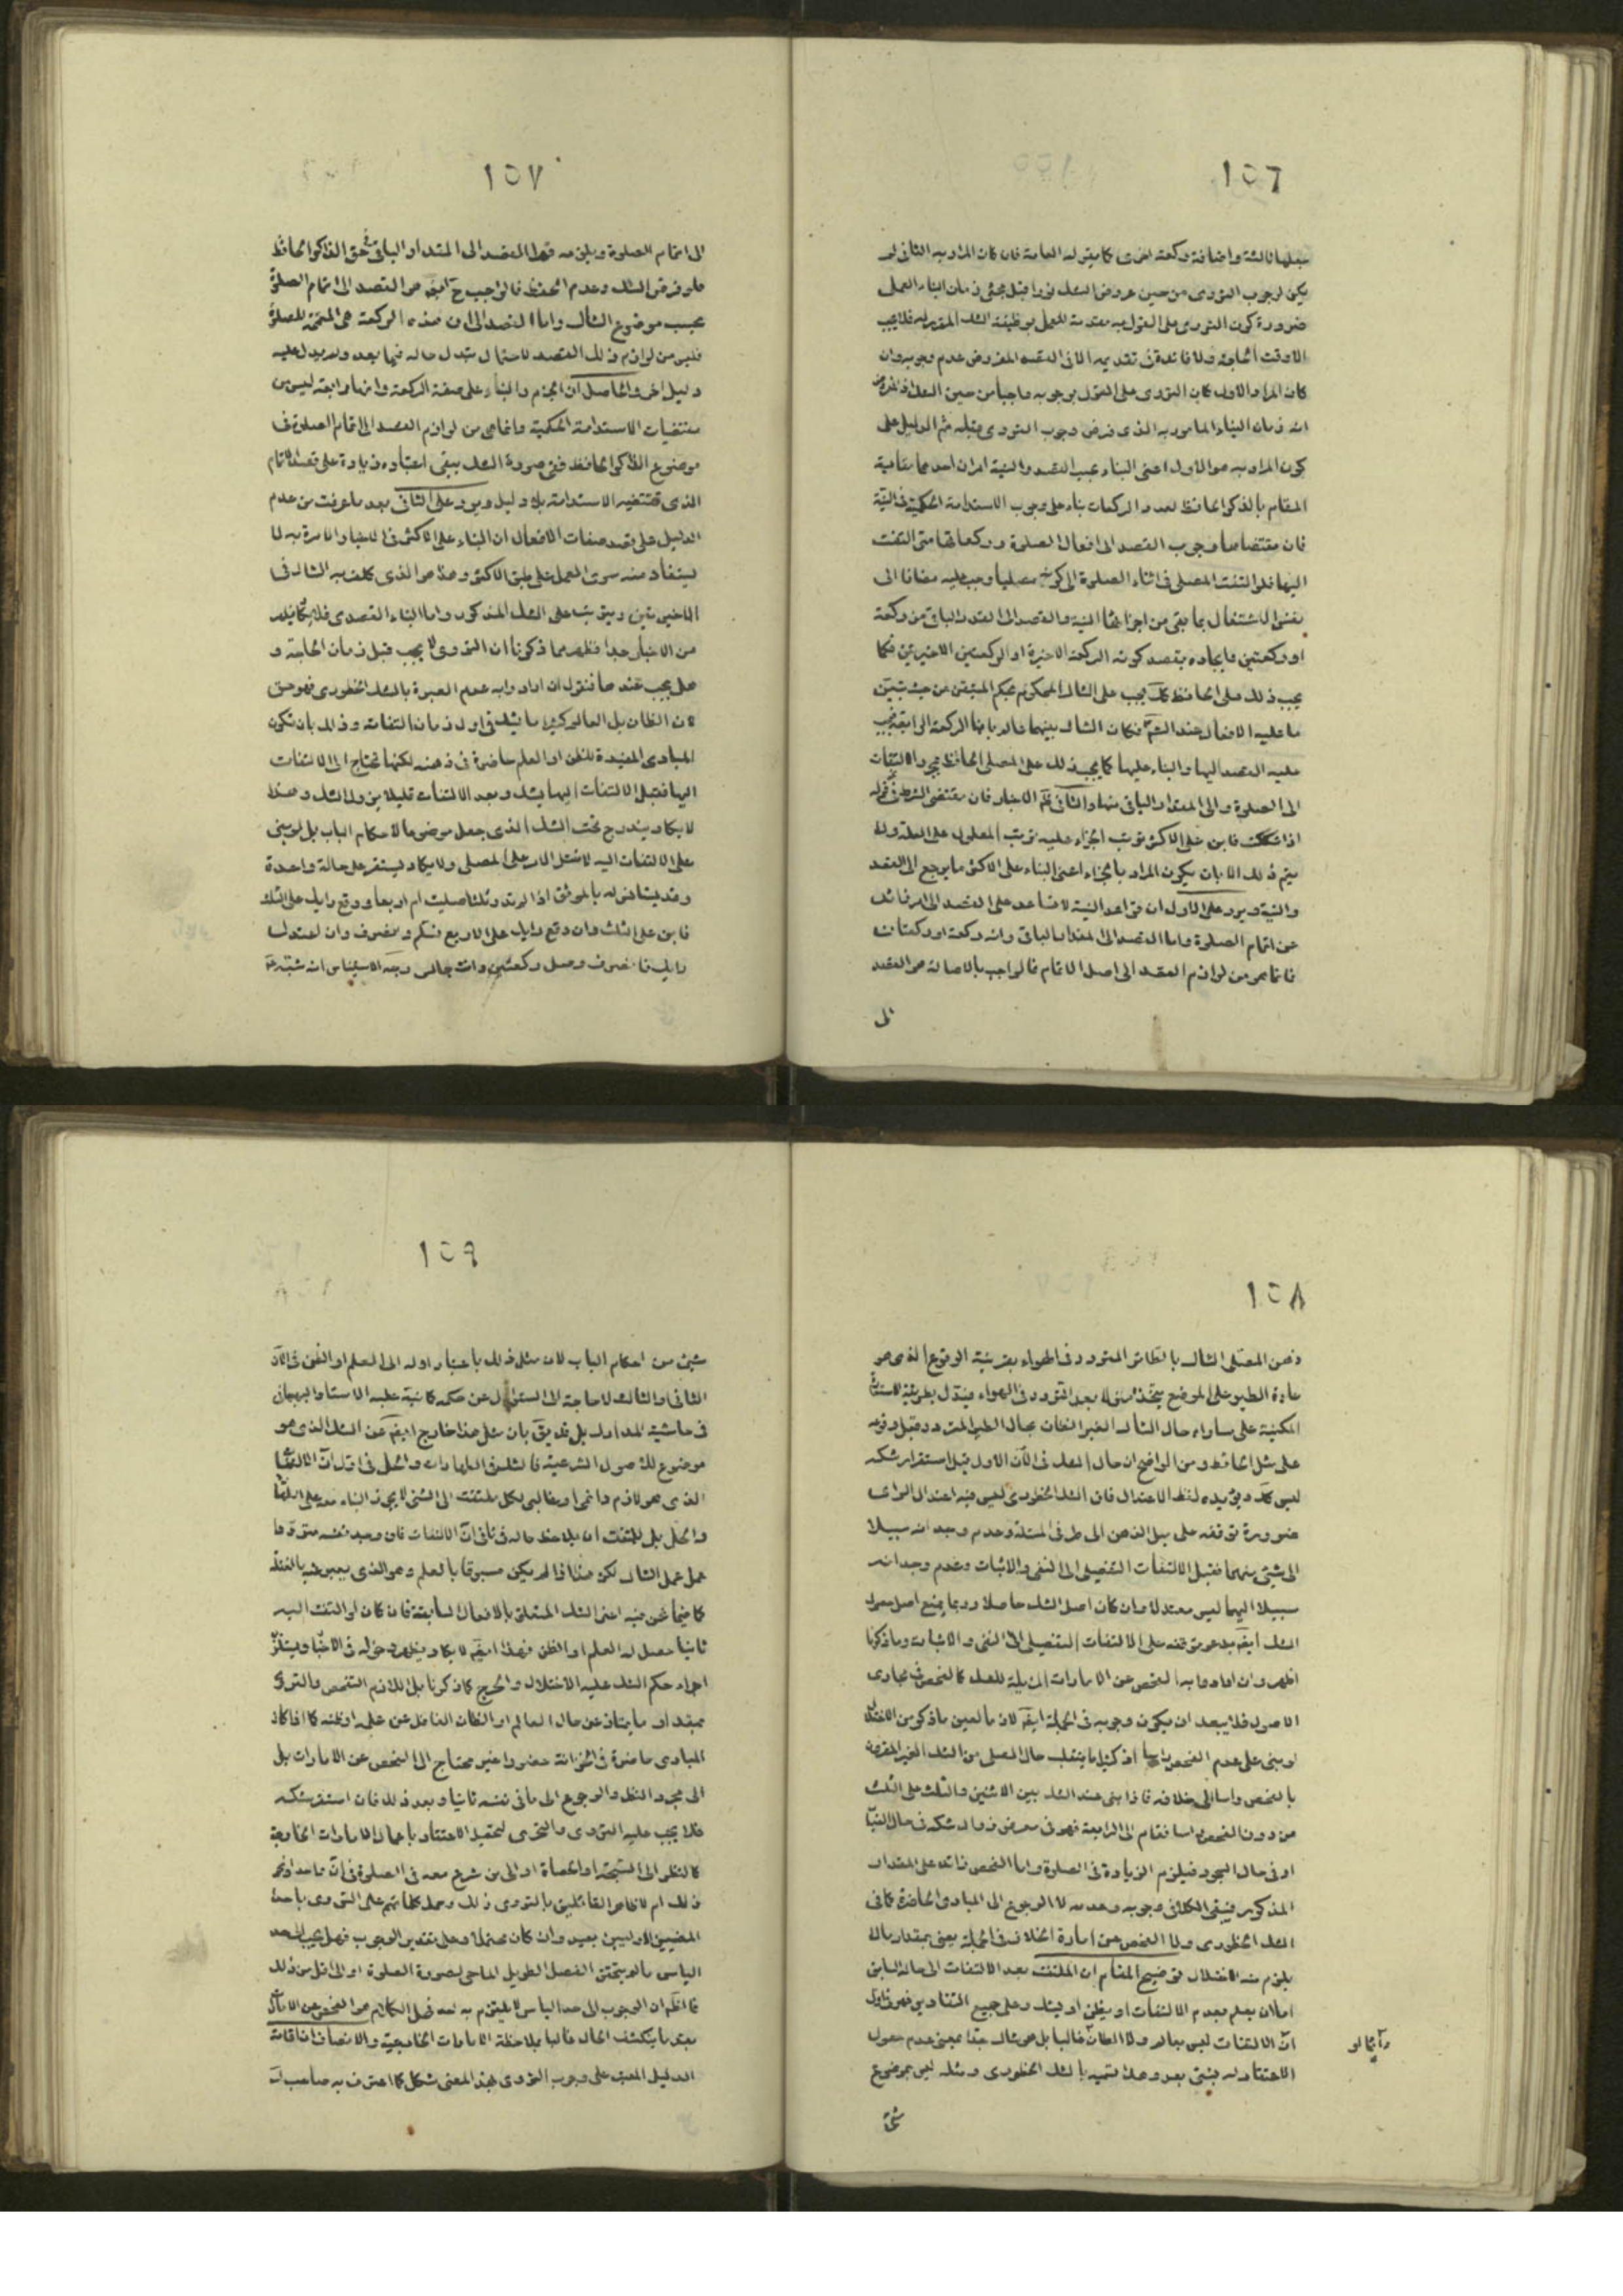 ١٥٦
يجعلها ثالثة واضافة ركعة اخرى كما يقوله العامة فان كان المراد به الثاني لم
يكن لوجوب التروى من حين عروض الشك فورا قبل مجئ زمان البناء العملى
ضرورة كون التروى على القول به مقدمة للعمل بوظيفة الشك المقررله فلا يجب
الا وقت الحاجة ولا فائدة في تقديمه الا في القصد المفروض عدم وجوبه وان
كان المراد الاول كان التروى على القول بوجوبه واجبا من حين الشك
انه زمان البناء المامور به الذى فرض وجوب التروى قبله ثم الدليل على
كون المراد به هو الاول اعنى البناء بحسب القصد والنية امران احدهما مقايسة
المقام بالذاكر الحافظ لعدد الركعات بناء على وجوب الاستدامة الحكمية في النية
فان مقتضاها وجوب القصد الى افعال الصلوة وركعاتها متى التفت
اليها فلو التفت المصلى في اثناء الصلوة الى كونه مصليا وجب عليه مضافا الى
نفس الاشتغال بما بقى من اجزائها النية والقصد الى القدر الباقى من ركعة
او ركعتين فايجاده بقصد كونه الركعة الاخيرة او الركعتين الاخيرتين فكما
يجب ذلك على الحافظ كك يجب على الشاك المحكوم بحكم المتيقن من حيث
ما عليه الافعال عند الشك فكان الشاك بينهما عالم بانها الركعة الرابعة فيجب
عليه القصد اليها والبناء عليها كما يجب ذلك على المصلى الحافظ بمجرد الالتفات
الى الصلوة والى المقدار الباقى منها والثانى ظاهر الاخبار فان مقتضى الشرط في قوله
اذا شككت فابن على الاكثر ترتب الجزاء عليه ترتب المعلول على العلة ولا
يتم ذلك الا بان يكون المراد بالجزاء اعنى البناء على الاكثر ما يرجع الى القصد
والنية ويرد على الاول ان قواعد النية لا تساعد على القصد الى امر زائد
عن اتمام الصلوة واما القصد الى المقدار الباقى وانه ركعة او ركعتان
فانما هو من لوازم القصد الى اصل الاتمام فالواجب بالاصالة هو القصد
١٥٧
الى اتمام الصلوة ويلزمه قهرا القصد الى المقدار الباقى في حق الذاكر الحافظ
فلو فرض الشك وعدم الحفظ فالواجب ح ايضا هو القصد الى اتمام الصلوة
بحسب موضوع الشاك واما القصد الى ان هذه الركعة هى المتممة للصلوة
فليس من لوازم ذلك القصد لاحتمال تبدل حاله فيما بعد ولم يدل عليه
دليل اخر والحاصل ان الجزم والبناء على صفة الركعة وانها رابعة ليس من
مقتضيات الاستدامة الحكمية وانما هى من لوازم القصد الى اتمام الصلوة في
موضوع الذاكر الحافظ ففى صورة الشك يبقى اعتباره زيادة على قصد الاتمام
الذى تقتضيه الاستدامة بلا دليل ويرد على الثانى بعد ما عرفت من عدم
الدليل على قصد صفات الافعال ان البناء على الاكثر في الاخبار الامرة به لا
يستفاد منه سوى العمل على طبق الاكثر وهذا هو الذى كلف به الشاك في
الاخيرتين ويترتب على الشك المذكور واما البناء القصدى فلا
من الاخبار جدا فظهر مما ذكرنا ان التروى لا يجب قبل زمان الحاجة و
هل يجب عندها فنقول ان اراد وابه عدم العبرة بالشك الخطورى فهو حق
لان الظان بل العالم كثيرا ما يشك في اول زمان التفاته وذلك بان تكون
المبادى المفيدة للظن او العلم حاضرة في ذهنه لكنها تحتاج الى الالتفات
اليها فقبل الالتفات اليها يشك وبعد الالتفات قليلا يزول الشك وهذا
لا يكاد يندرج تحت الشك الذى جعل موضوعا لاحكام الباب بل لو بنى
على الالتفات اليه لاشكل الامر على المصلى ولا يكاد يستقر على حالة واحدة
وقد يستانس له بالموثق اذا لم تدر ثلثا صليت ام اربعا ووقع رايك على الثلث
فابن على الثلث وان وقع رايك على الاربع فسلم وانصرف وان اعتدل
رايك فانصرف وصل ركعتين وانت جالس وجه الاستيناس انه شبه
١٥٨
ذهن المصلى الشاك بالطائر المتردد في الهواء بقرينة الوقوع الذى هو
عادة الطير على الموضع يتخذه بعد التردد في الهواء فيدل بطريقة الاستعارة
المكنية على مساواه حال الشاك الغير الظان بحال الطير المتردد قبل وقوعه
على مثل الحائط ومن الواضح ان حال الشك في الآن الاول قبل استقرار شكه
ليس كك ويؤيده لفظ الاعتدال فان الشك الخطورى ليس فيه اعتدال الراى
ضرورة توقفه على ميل الذهن الى طرفى المسئلة وعدم وجدانه سبيلا
الى شئ منهما فقبل الالتفات التفصيلى الى النفى والاثبات وعدم وجدانه
سبيلا اليهما ليس معتدلا وان كان اصل الشك حاصلا وربما يمنع اصل حصول
الشك ايضا بدعوى توقفه على الالتفات التفصيلى الى النفى والاثبات وما ذكرنا
اظهر وان ارادوا به الفحص عن الامارات المزيلة للشك كالفحص في مجارى
الاصول فلا يبعد ان يكون وجوبه في الجملة ايضا لان ما لعين ما ذكر من الاختلال
لو بنى على عدم الفحص راسا اذ كثيرا ما ينقلب حال المصلى من الشك الغير المقرون
بالفحص راسا الى خلافه فاذا بنى عند الشك بين الاثنين والثلث على الثلث
من دون الفحص راسا فقام الى الرابعة فهو في معرض زوال شكه في حال القيام
او في حال السجود فيلزم الزيادة في الصلوة واما الفحص زائدا على المقدار
المذكور فيبقى الكلام في وجوبه وعدمه لا الرجوع الى المبادى الحاضرة كما في
الشك الخطورى ولا الفحص عن امارة الخلاف في الجملة يعنى بمقدار ما لا
يلزم منه الاختلال توضيح المقام ان الملتفت بعد الالتفات الى حاله السابق
اما ان يعلم بعدم الالتفات او يظن او يشك وعلى جميع التقادير فهو في اول
ان الالتفات ليس بعالم ولا الظان غالبا بل هو شاك جدا بمعنى عدم حصول
الاعتقاد له بشئ بعد وهذا نسميه بالشك الخطورى ومثله ليس بموضوع
شئ
١٥٩
شئ من احكام الباب لان مثل ذلك باعتبار اوله الى العلم او الظن في الآن
الثانى والثالث لا حاجة الى السئوال عن حكمه كما نبه عليه الاستاد البهبهانى
في حاشية المدارك بل قد يق بان مثل هذا خارج ايضا عن الشك الذى هو
موضوع للاصول الشرعية فالشك في الطهارات والحل في اول آن الالتفات
الذى هو لازم دائمى او غالبى لكل ملتفت الى الشئ لا يجوز البناء معه على الطهارة
والحل بل للملتفت ان يلاحظ حاله في ثانى آن الالتفات فان وجد نفسه مترددا
عمل عمل الشاك لكن هذا اذا لم يكن مسبوقا بالعلم وهو الذى يعبر عنه بالغفلة
كما فيما نحن فيه اعنى الشك المتعلق بالافعال السابقة فان كان لو التفت اليه
ثانيا حصل له العلم او الظن فهذا ايضا لا يكاد يظهر دخوله في الاخبار ويستلزم
اجراء حكم الشك عليه الاختلال والحرج كما ذكرنا بل اللازم التفحص والتروى
بمقدار ما يمتاز عن حال العالم او الظان الغافل عن علمه او ظنه كما اذا كان
المبادى حاضرة في الخزانة حضورا غير محتاج الى الفحص عن الامارات بل
الى مجرد النظر والرجوع الى ما في نفسه ثانيا وبعد ذلك فان استقر شكه
فلا يجب عليه التروى والتحرى لتحصيل الاعتقاد باعمال الامارات الخارجة
كالنظر الى السبحة او الحصاة او الى من شرع معه في الصلوة في آن واحد او نحو
ذلك ام لا ظاهر القائلين بالتروى ذلك وحمل كلماتهم على التروى باحد
المعنيين الاولين بعيد وان كان محتملا وعلى تقدير الوجوب فهل يجب الى حد
الياس ما لم يتحقق الفصل الطويل الماحى لصورة الصلوة او الى اقل من ذلك
فالظاهر ان الوجوب الى حد الياس لا يلتزم به احد فمحل الكلام هو الفحص عن الامارة
بقدر ما ينكشف الحال غالبا بملاحظة الامارات الخارجية والانصاف ان اقامة
الدليل المعتبر على وجوب التروى بهذا المعنى مشكل كما اعترف به صاحب